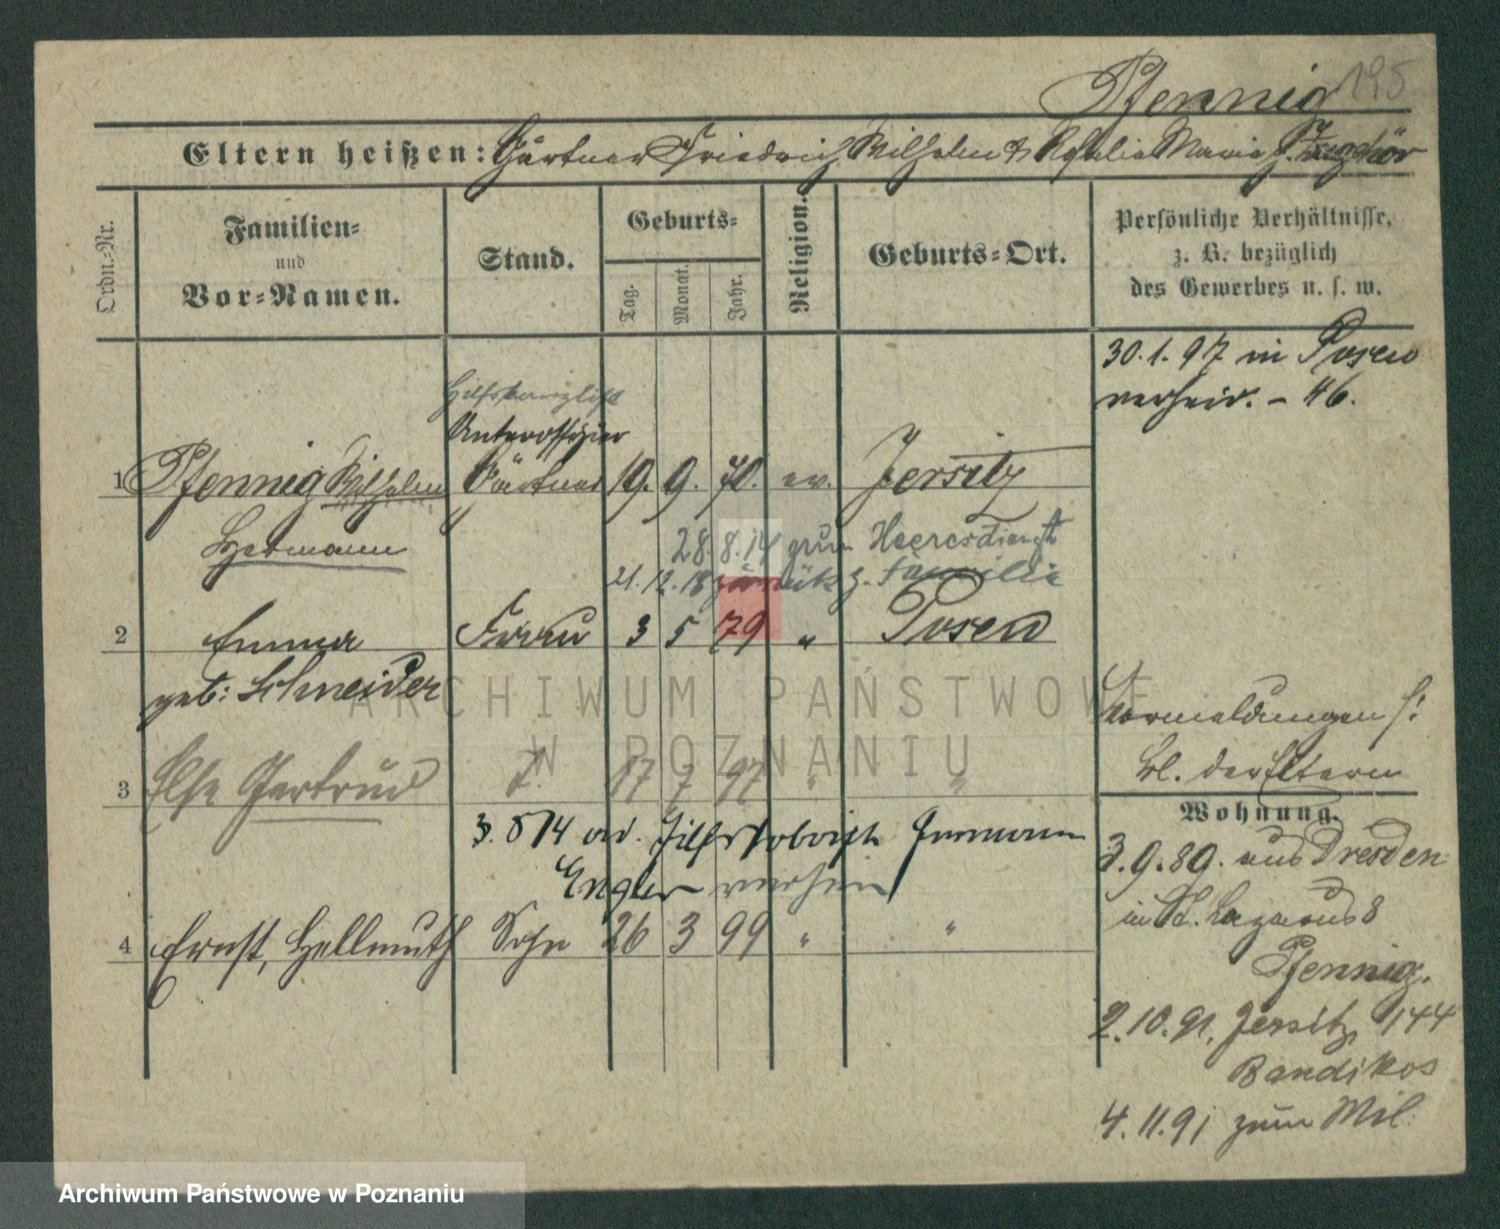 Pfennig 195
Eltern heißen: Gärtner Friedrich Wilhelm & Rosalie Maria g.
Ordn.-Nr.
Familien-
und
Vor-Namen.
Stand.
Geburts-
Tag.
Monat.
Jahr.
Religion.
Geburts-Ort.
Persönliche Verhältnisse,
z. B. bezüglich
des Gewerbes u. s. w.
30.1.97 in Posen
verheir. - 46.
Hilfskanzlist
Unteroffizier
1 Pfennig Wilhelm Gärtner 19. 9. 70. ev. Jersitz
Hermann
28. 8. 14 zum Heeresdienst
21. 12. 18 zurück z. Familie
2 Emma Frau 3 5 79 " Posen
geb: Schneider
ARCHIWUM PAŃSTWOWE
W POZNANIU
Vormeldungen s:
Bl. der Eltern
3 Else Gertrud T. 17 7 97 " "
3. 8 14 Hermann
Engler verheir
4 Ernst, Hellmuth Sohn 26 3 99 " "
Wohnung.
3.9.89. aus Dresden
in St. Lazarus 8
Pfennig.
2.10.91. Jersitz 144
Bandikos
4.11.91 zum Mil.
Archiwum Państwowe w Poznaniu